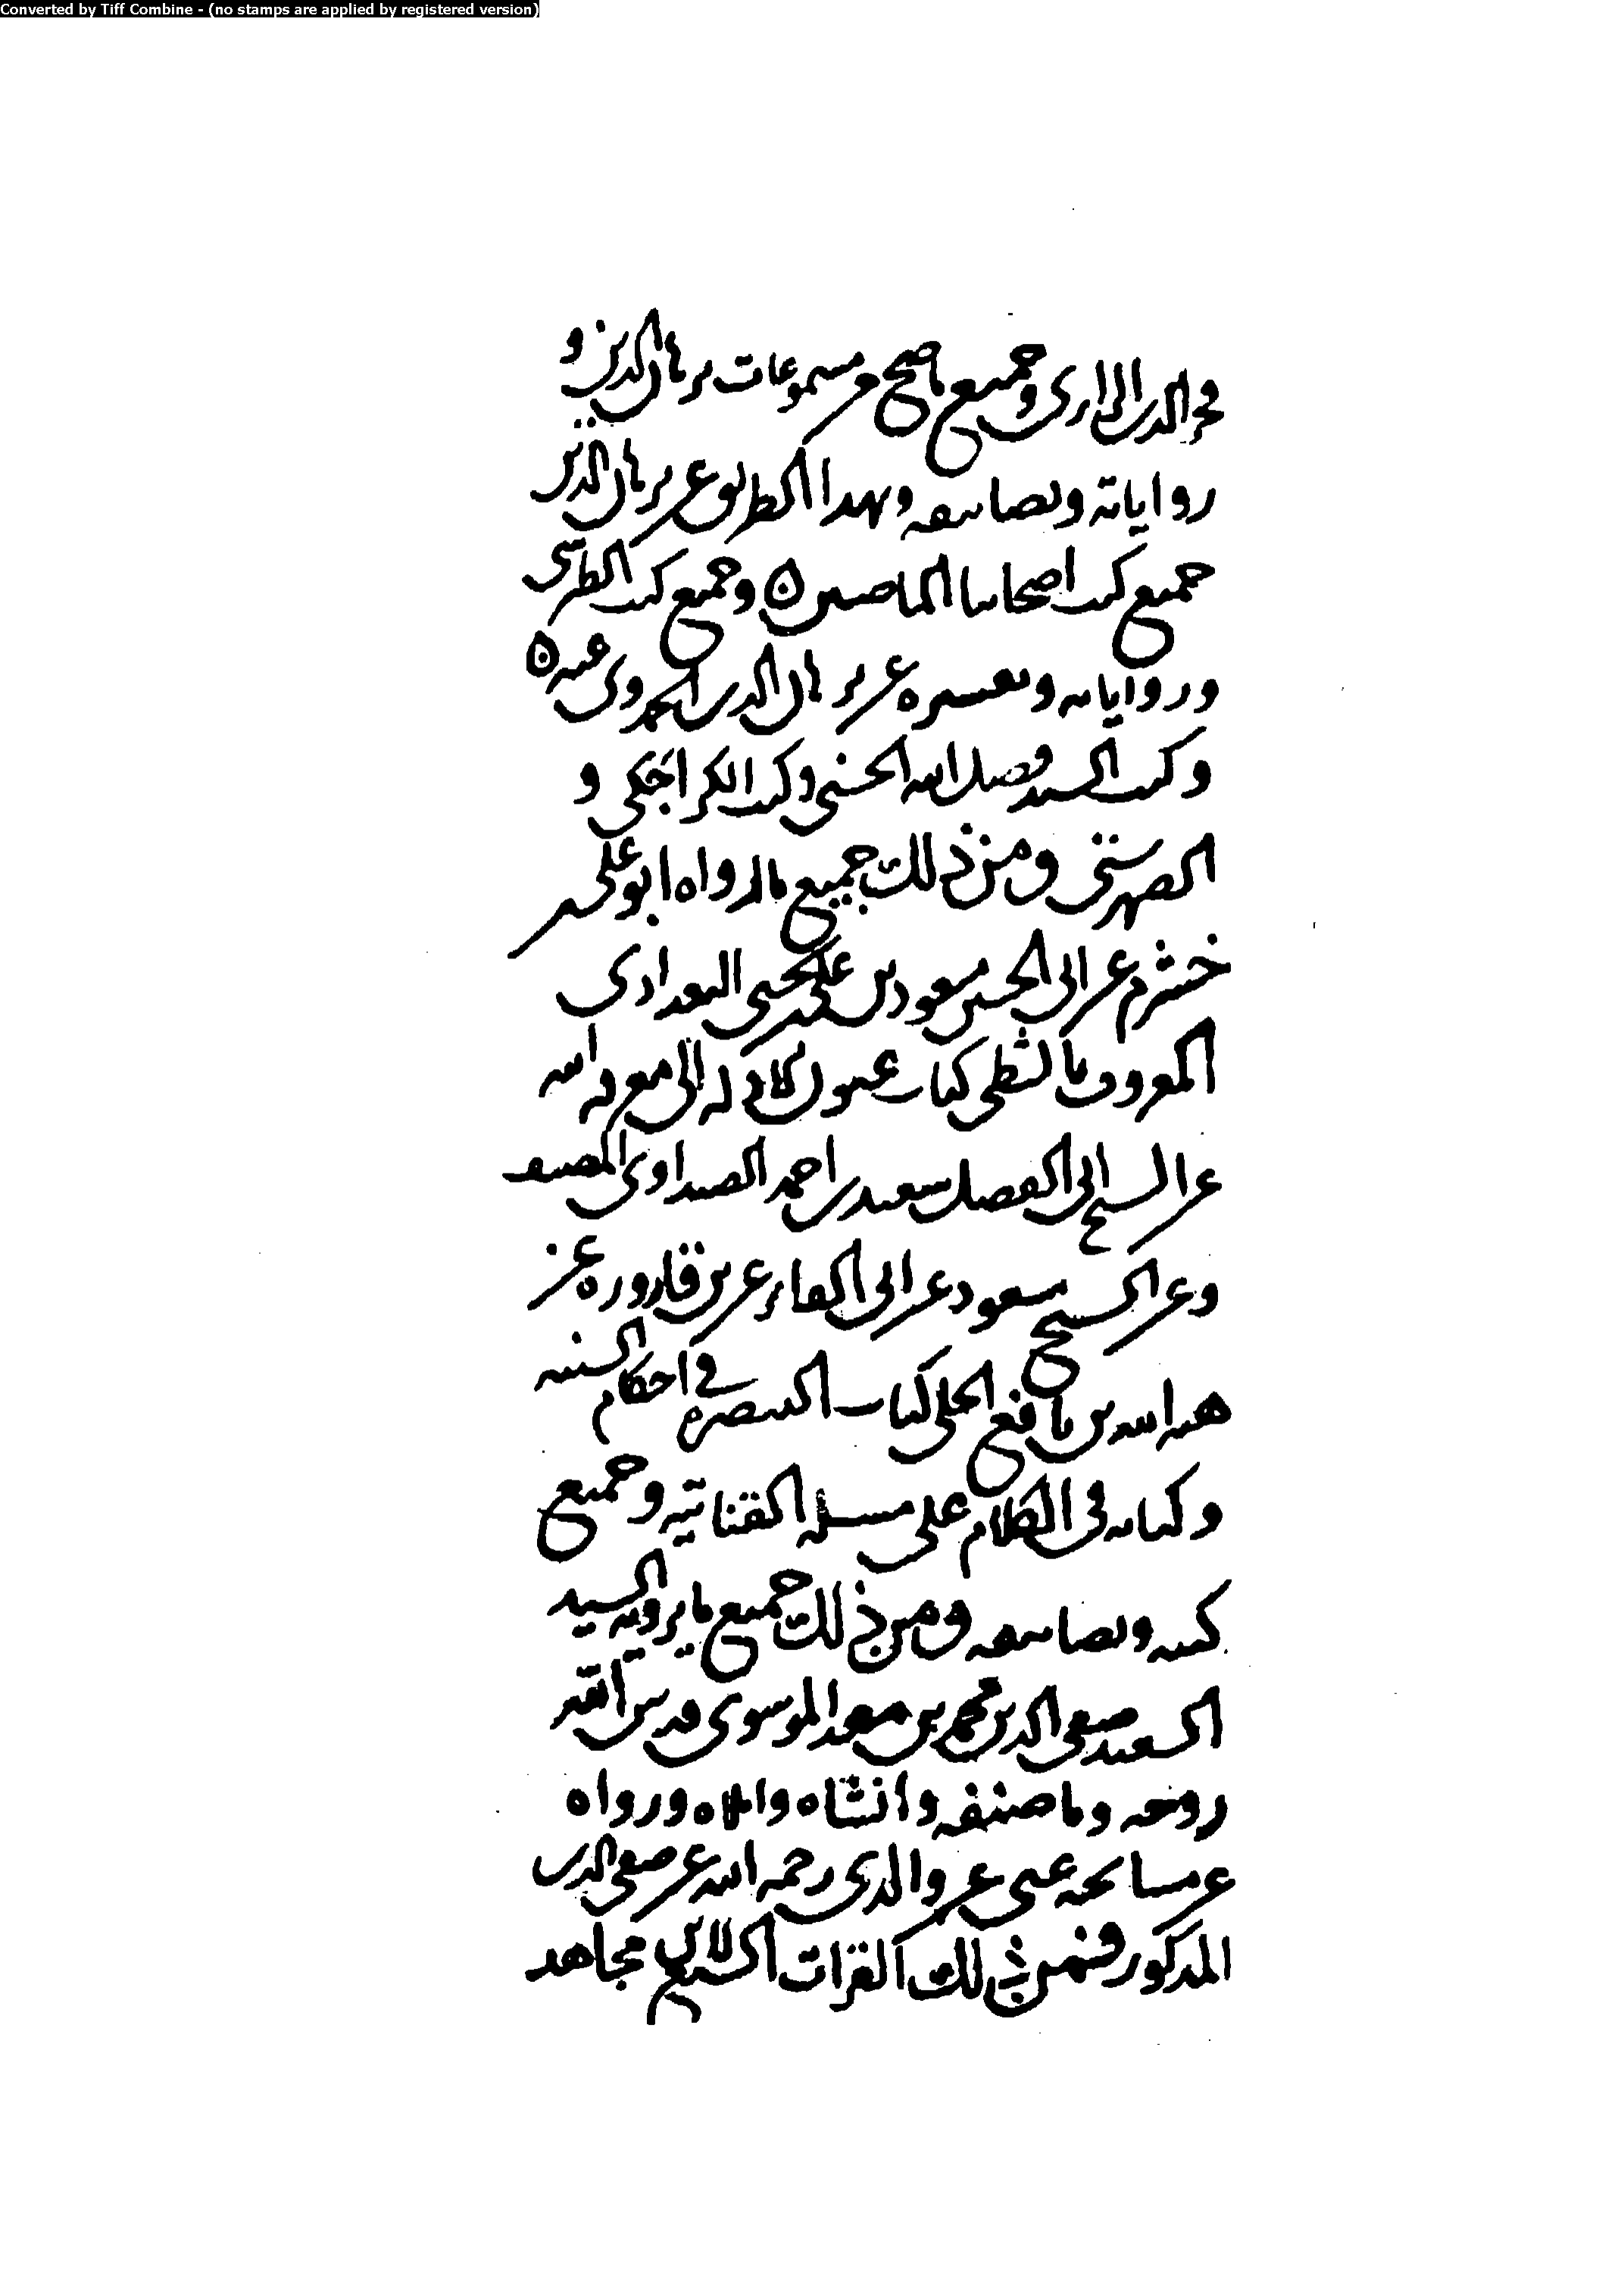 Converted by Tiff Combine - (no stamps are applied by registered version)
فخر الدين الرازى وجميع ما صح من مسموعات برهان الدين و
رواياته وتصانيفه وبهذا الطريق عن برهان الدين
جميع كتب اصحابنا الماضين ٥ وجميع كتب الطبرسى
ورواياته وتفسيره عن برهان الدين الحمدونى عنه ٥
وكتب السيد فضل الله الحسنى وكتب الكراجكى و
الصهرشتى ومن ذلك جميع ما رواه ابو على بن
خشرم عن ابى الحسين مسعود بن على بن يحيى البغدادى
المعروف بالشطى كتاب عيون الادلة الى معرفة الله
عن الشيخ ابى الفضل سعيد بن احمد الصيداوى المصنف
وعن الشيخ مسعود عن ابى الغنائم عن بن قارورة عن
هبة الله بن نافع الحلى كتاب التبصرة في احكام السنة
وكتابه فى الكلام على مسئلة القنانية وجميع
كتبه وتصانيفه ومن ذلك جميع ما يرويه السيد
السعيد صفى الدين محمد بن معد الموسوى قدس الله
روحه وما صنفه وانشاه واملاه ورواه
عن مشايخه عنى عن والدى رحمه الله عن صفى الدين
المذكور فمن ذلك القرات السبع لابن مجاهد